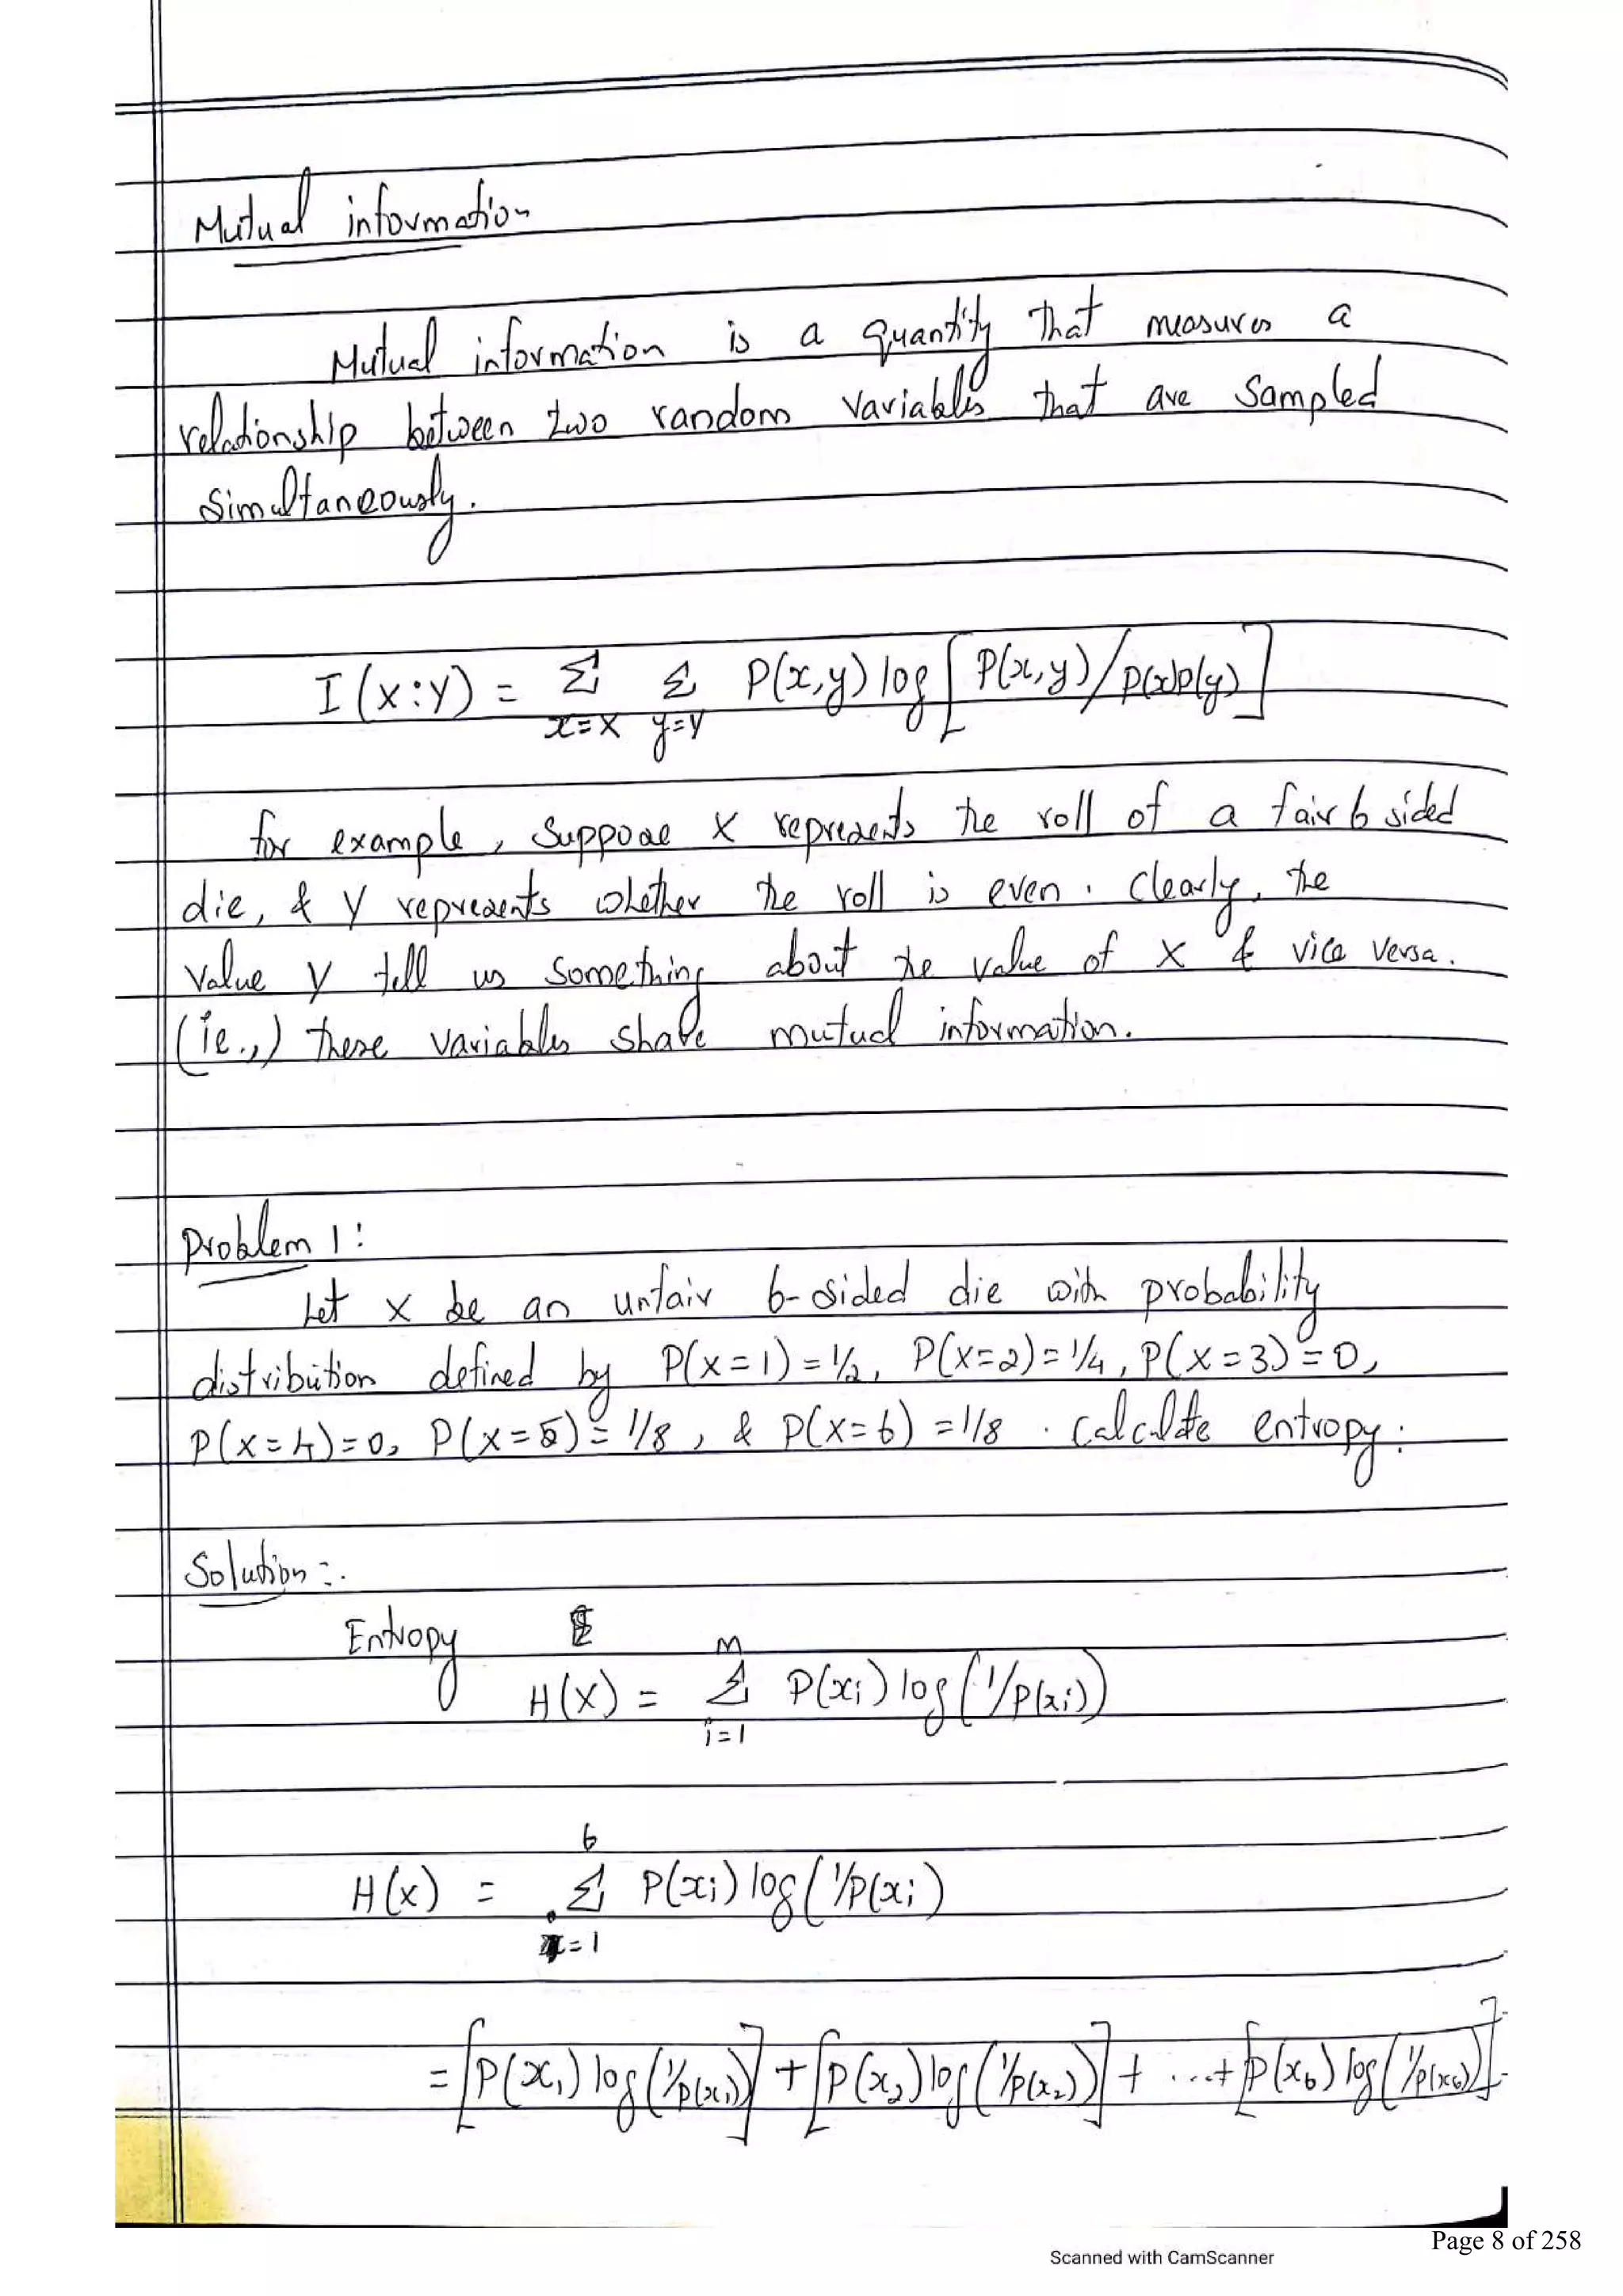 Mutual information
Mutual information is a quantity that measures a
relationship between two random variables that are sampled
simultaneously.
I(X:Y) = Σ Σ P(x,y) log [P(x,y)/p(x)p(y)]
x=X y=Y
for example, suppose X represents the roll of a fair 6 sided
die, & Y represents whether the roll is even. Clearly, the
value Y tell us something about the value of X & vice versa.
(ie.,) these variables share mutual information.
Problem 1:
Let X be an unfair 6-sided die with probability
distribution defined by P(X=1)=1/2, P(X=2)=1/4, P(X=3)=0,
P(X=4)=0, P(X=5)=1/8, & P(X=6)=1/8. Calculate entropy.
Solution:
Entropy
M
H(X) = Σ P(xi) log(1/p(xi))
i=1
6
H(x) = Σ P(xi) log(1/P(xi)
i=1
= [P(x1) log(1/p(x1))] + [P(x2) log(1/p(x2))] + ...+ [P(x6) log(1/p(x6))]
Page 8 of 258
Scanned with CamScanner